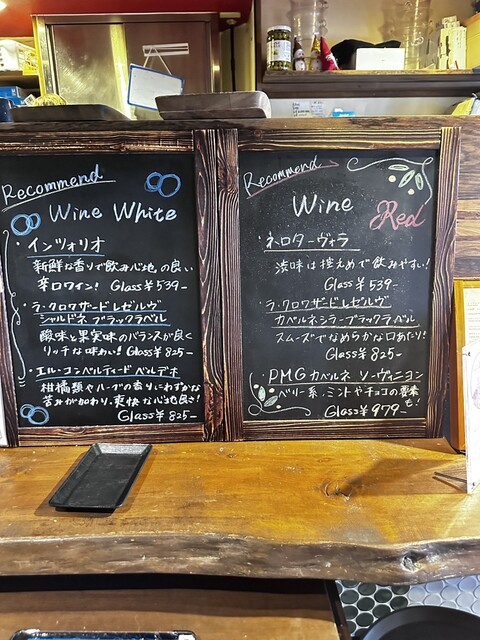 Recommend
Wine White
・インツォリオ
新鮮な香りで飲み心地の良い
辛口ワイン! Glass ¥539-
・ラ・クロワザード レゼルヴ
シャルドネ ブラックラベル
酸味と果実味のバランスが良く
リッチな味わい! Glass ¥825-
・エル・コンベルティード ベルデホ
柑橘類やハーブの香りにわずかな
苦みが加わり、爽快な心地良さ!
Glass ¥825-
Recommend
Wine
Red
・ネロダーヴォラ
渋味は控えめで飲みやすい!
Glass ¥539-
・ラ・クロワザード レゼルヴ
カベルネシラーブラックラベル
スムーズでなめらかな口あたり!
Glass ¥825-
・PMG カベルネ ソーヴィニヨン
ベリー系、ミントやチョコの要素
も!
Glass ¥979-